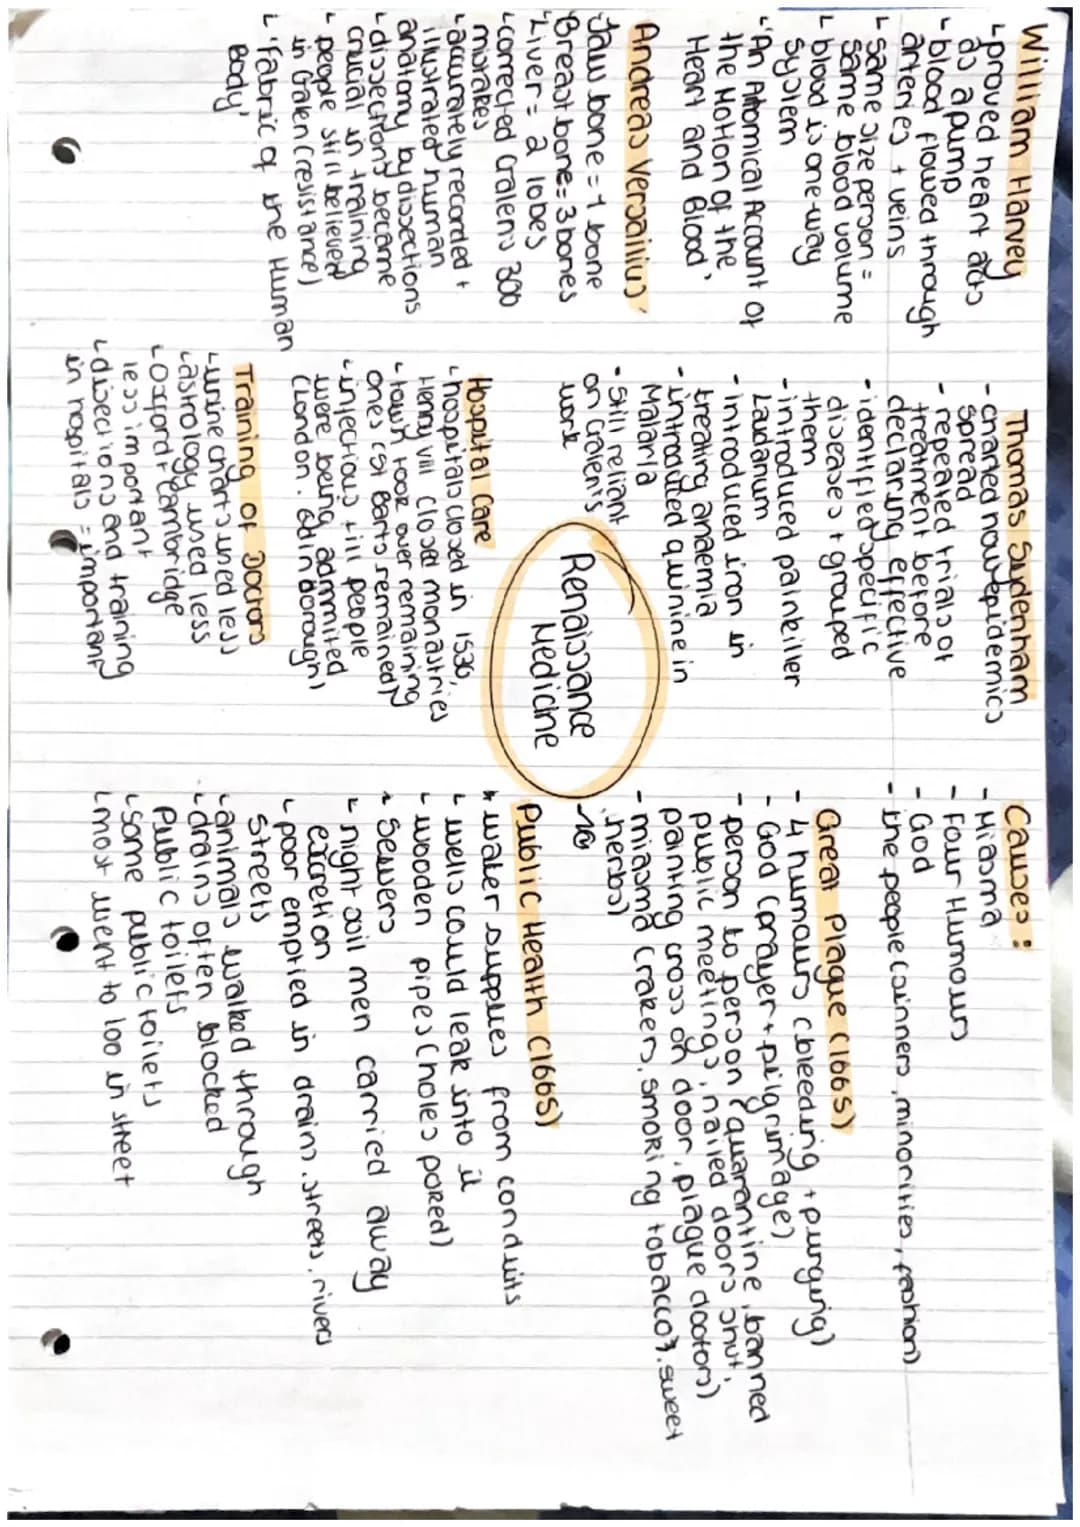 William Harvey
↳ proved heart acts
as a pump
- blood flowed through
arteries + veins
↳ same size person =
same blood volume
↳ blood is one-way
system
↳ 'An Atomical Account of
the Motion of the
Heart and Blood'
Andreas Versailius
Jaw bone = 1 bone
Breast bone = 3 bones
Liver = 2 lobes
↳ corrected Galens 300
mistakes
↳ accurately recorded +
illustrated human
anatomy by dissections
↳ dissections became
crucial in training
↳ people still believed
in Galen (resistance)
↳ 'Fabric of the Human
Body'
Thomas Sydenham
- charted how epidemics
spread
- repeated trials of
treatment before
declaring effective
- identified specific
diseases + grouped
them
- introduced painkiller
Laudanum
- introduced iron in
treating anaemia
- introduted quinine in
Malaria
- still reliant
on Galen's
work
Renaissance
Medicine
Hospital Care
↳ hospitals closed in 1536,
Henry VIII closed monastries
↳ town took over remaining
ones (st Barts remained)
↳ infectious + ill people
were being admmited
(London. Edinborough)
Training of Doctors
↳ urine charts used less
↳ astrology used less
↳ Oxford + Cambridge
less important
↳ disections and training
in hospitals = important
Causes:
- Miasma
- Four Humours
- God
- the people (sinners, minorities, fashion)
Great Plague (1665)
- 4 humours (bleeding + purging)
- God (prayer + pilgrimage)
- person to person (quarantine, banned
public meetings, nailed doors shut,
painting cross on door, plague doctors)
- miasma (rakers, smoking tobacco, sweet
herbs)
Public Health (1665)
* water supplies from conduits
↳ wells could leak into it
↳ wooden pipes (holes poked)
* sewers
↳ night soil men carried away
excretion
↳ poor emptied in drains, streets, rivers
streets
↳ animals walked through
↳ drains often blocked
public toilets
↳ some public toilets
↳ most went to loo in street